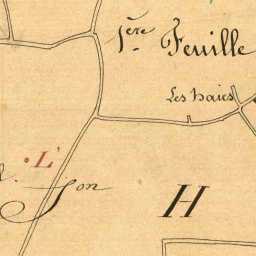 1ère Feuille
Les haies
L'
Son
H